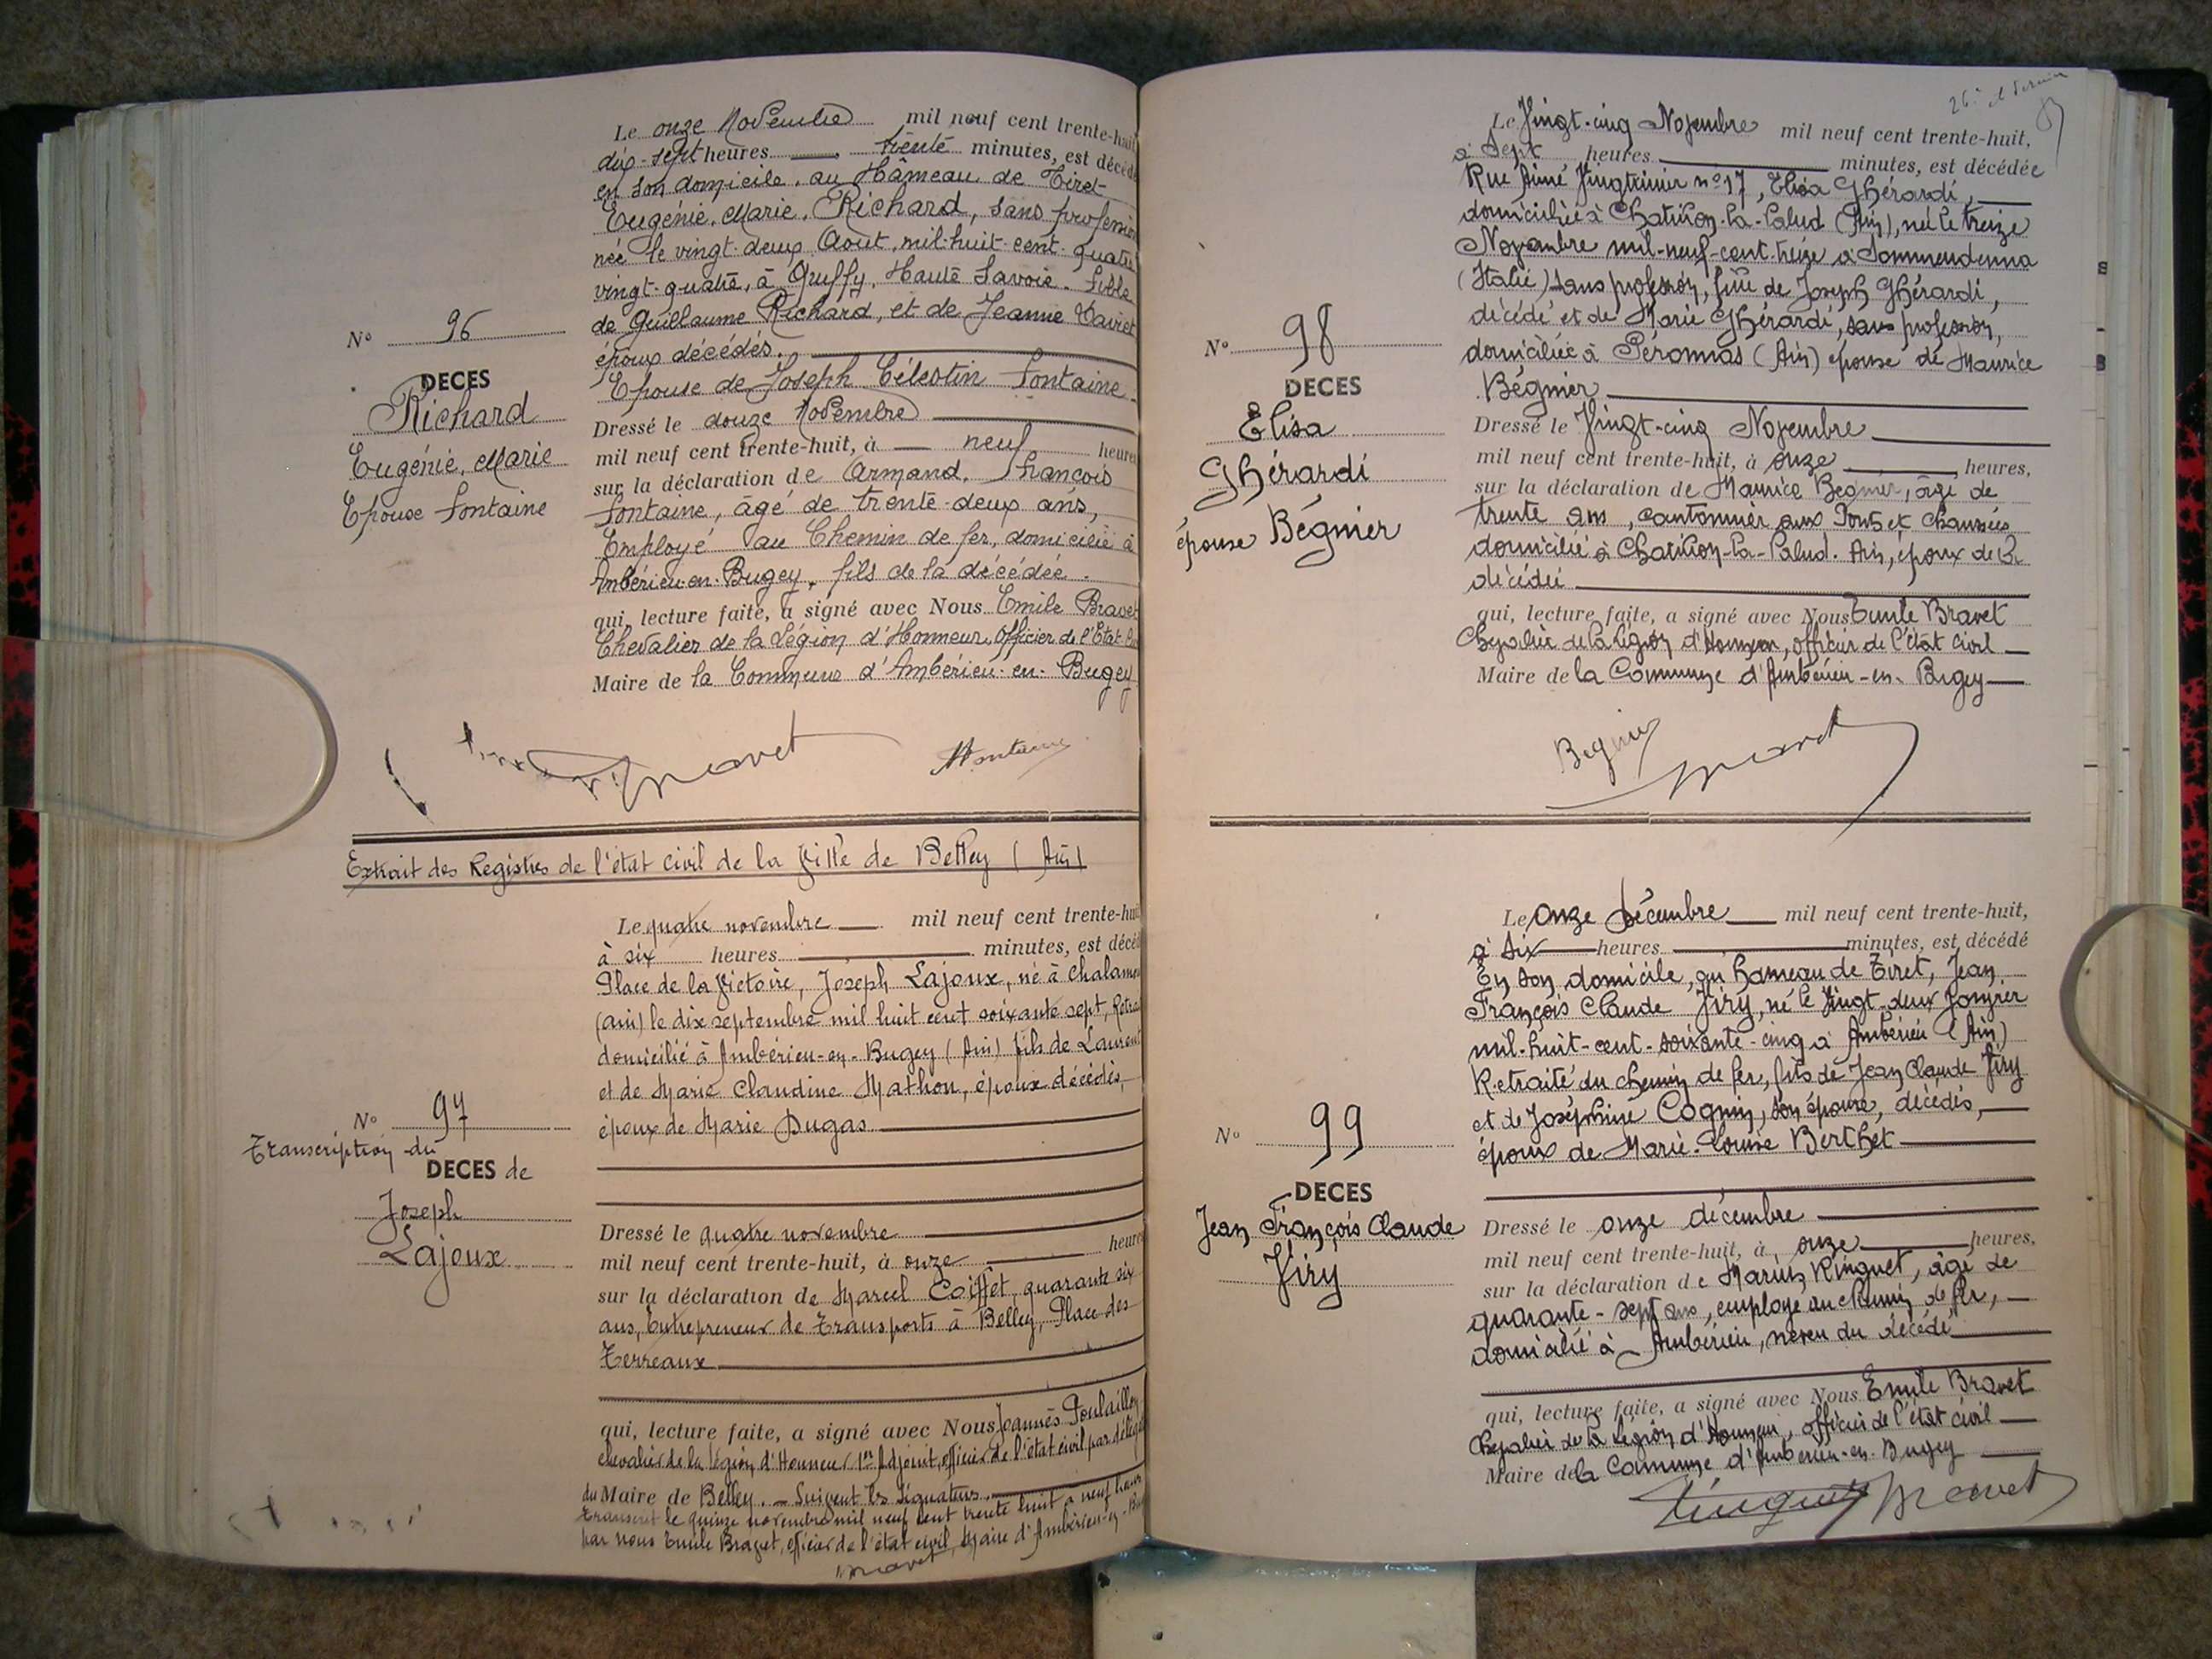 Le onze Novembre mil neuf cent trente-huit
dix-sept heures trente minutes, est décédé
en son domicile, au Hâmeau de Tiret
Eugénie, Marie, Richard, sans profession
née le vingt-deux Aout, mil-huit-cent-quatre
vingt-quatre, à Gruffy, Haute Savoie. Fille
de Guillaume Richard, et de Jeanne
époux décédés.
Epouse de Joseph Célestin Fontaine
N° 96
DECES
Richard
Eugénie, Marie
Epouse Fontaine
Dressé le douze Novembre
mil neuf cent trente-huit, à neuf heures
sur la déclaration de Armand, François
Fontaine, âgé de trente-deux ans,
Employé au Chemin de fer, domicilié à
Ambérieu-en-Bugey, fils de la décédée.
qui, lecture faite, a signé avec Nous Emile Bravet
Chevalier de la Légion d'Honneur, Officier de l'Etat
Maire de la Commune d'Ambérieu-en-Bugey
Bravet
Extrait des Registres de l'état civil de la Ville de Belley (Ain)
Le quatre novembre mil neuf cent trente-huit
à six heures minutes, est décédé
Place de la Victoire, Joseph Lajoux, né à Chalamont
(ain) le dix septembre mil huit cent soixante sept, Retraité
domicilié à Ambérieu-en-Bugey (Ain) fils de Laurent
et de Marie Claudine Mathon, époux décédés,
époux de Marie Dugas
N° 97
Transcription du
DECES de
Joseph
Lajoux
Dressé le quatre novembre
mil neuf cent trente-huit, à onze heures
sur la déclaration de Marcel Coiffet, quarante six
ans, Entrepreneur de Transports à Belley, Place des
Terreaux
qui, lecture faite, a signé avec Nous Joannès Poulaillon
chevalier de la légion d'Honneur 1er Adjoint, officier de l'état civil par
du Maire de Belley. - Suivent les signatures.
Transcrit le quinze novembre mil neuf cent trente huit à neuf heures
par nous Emile Bravet, officier de l'état civil, Maire d'Ambérieu-en-
Bravet
26e et dernier
Le Vingt-cinq Novembre mil neuf cent trente-huit,
à Sept heures minutes, est décédée
Rue Aimé Vingtrinier n° 17, Elisa Ghérardi,
domiciliée à Chatillon-la-Palud (Ain), née le treize
Novembre mil-neuf-cent-treize à
(Italie) sans profession, fille de Joseph Ghérardi,
décédé et de Marie Ghérardi, sans profession,
domiciliée à Péronnas (Ain) épouse de Maurice
Bégnier
N° 98
DECES
Elisa
Ghérardi
épouse Bégnier
Dressé le Vingt-cinq Novembre
mil neuf cent trente-huit, à onze heures,
sur la déclaration de Maurice Begnier, âgé de
trente ans, cantonnier aux Ponts et Chaussées
domicilié à Chatillon-la-Palud. Ain, époux de la
décédée
qui, lecture faite, a signé avec Nous Emile Bravet
Chevalier de la Légion d'Honneur, officier de l'état civil
Maire de la Commune d'Ambérieu-en-Bugey
Begnier Bravet
Le Onze Décembre mil neuf cent trente-huit,
à Six heures minutes, est décédé
En son domicile, au hameau de Tiret, Jean
François Claude Viry, né le Vingt-deux Janvier
mil-huit-cent-soixante-cinq à Ambérieu (Ain)
Retraité du chemin de fer, fils de Jean Claude Viry
et de Joséphine Cognin, son épouse, décédés,
époux de Marie-Louise Berthet
N° 99
DECES
Jean François Claude
Viry
Dressé le onze décembre
mil neuf cent trente-huit, à onze heures,
sur la déclaration de Marius Ringuet, âgé de
quarante-sept ans, employé au chemin de fer,
domicilié à Ambérieu, neveu du décédé
qui, lecture faite, a signé avec Nous Emile Bravet
Chevalier de la Légion d'Honneur, officier de l'état civil
Maire de la Commune d'Ambérieu-en-Bugey
Ringuet Bravet